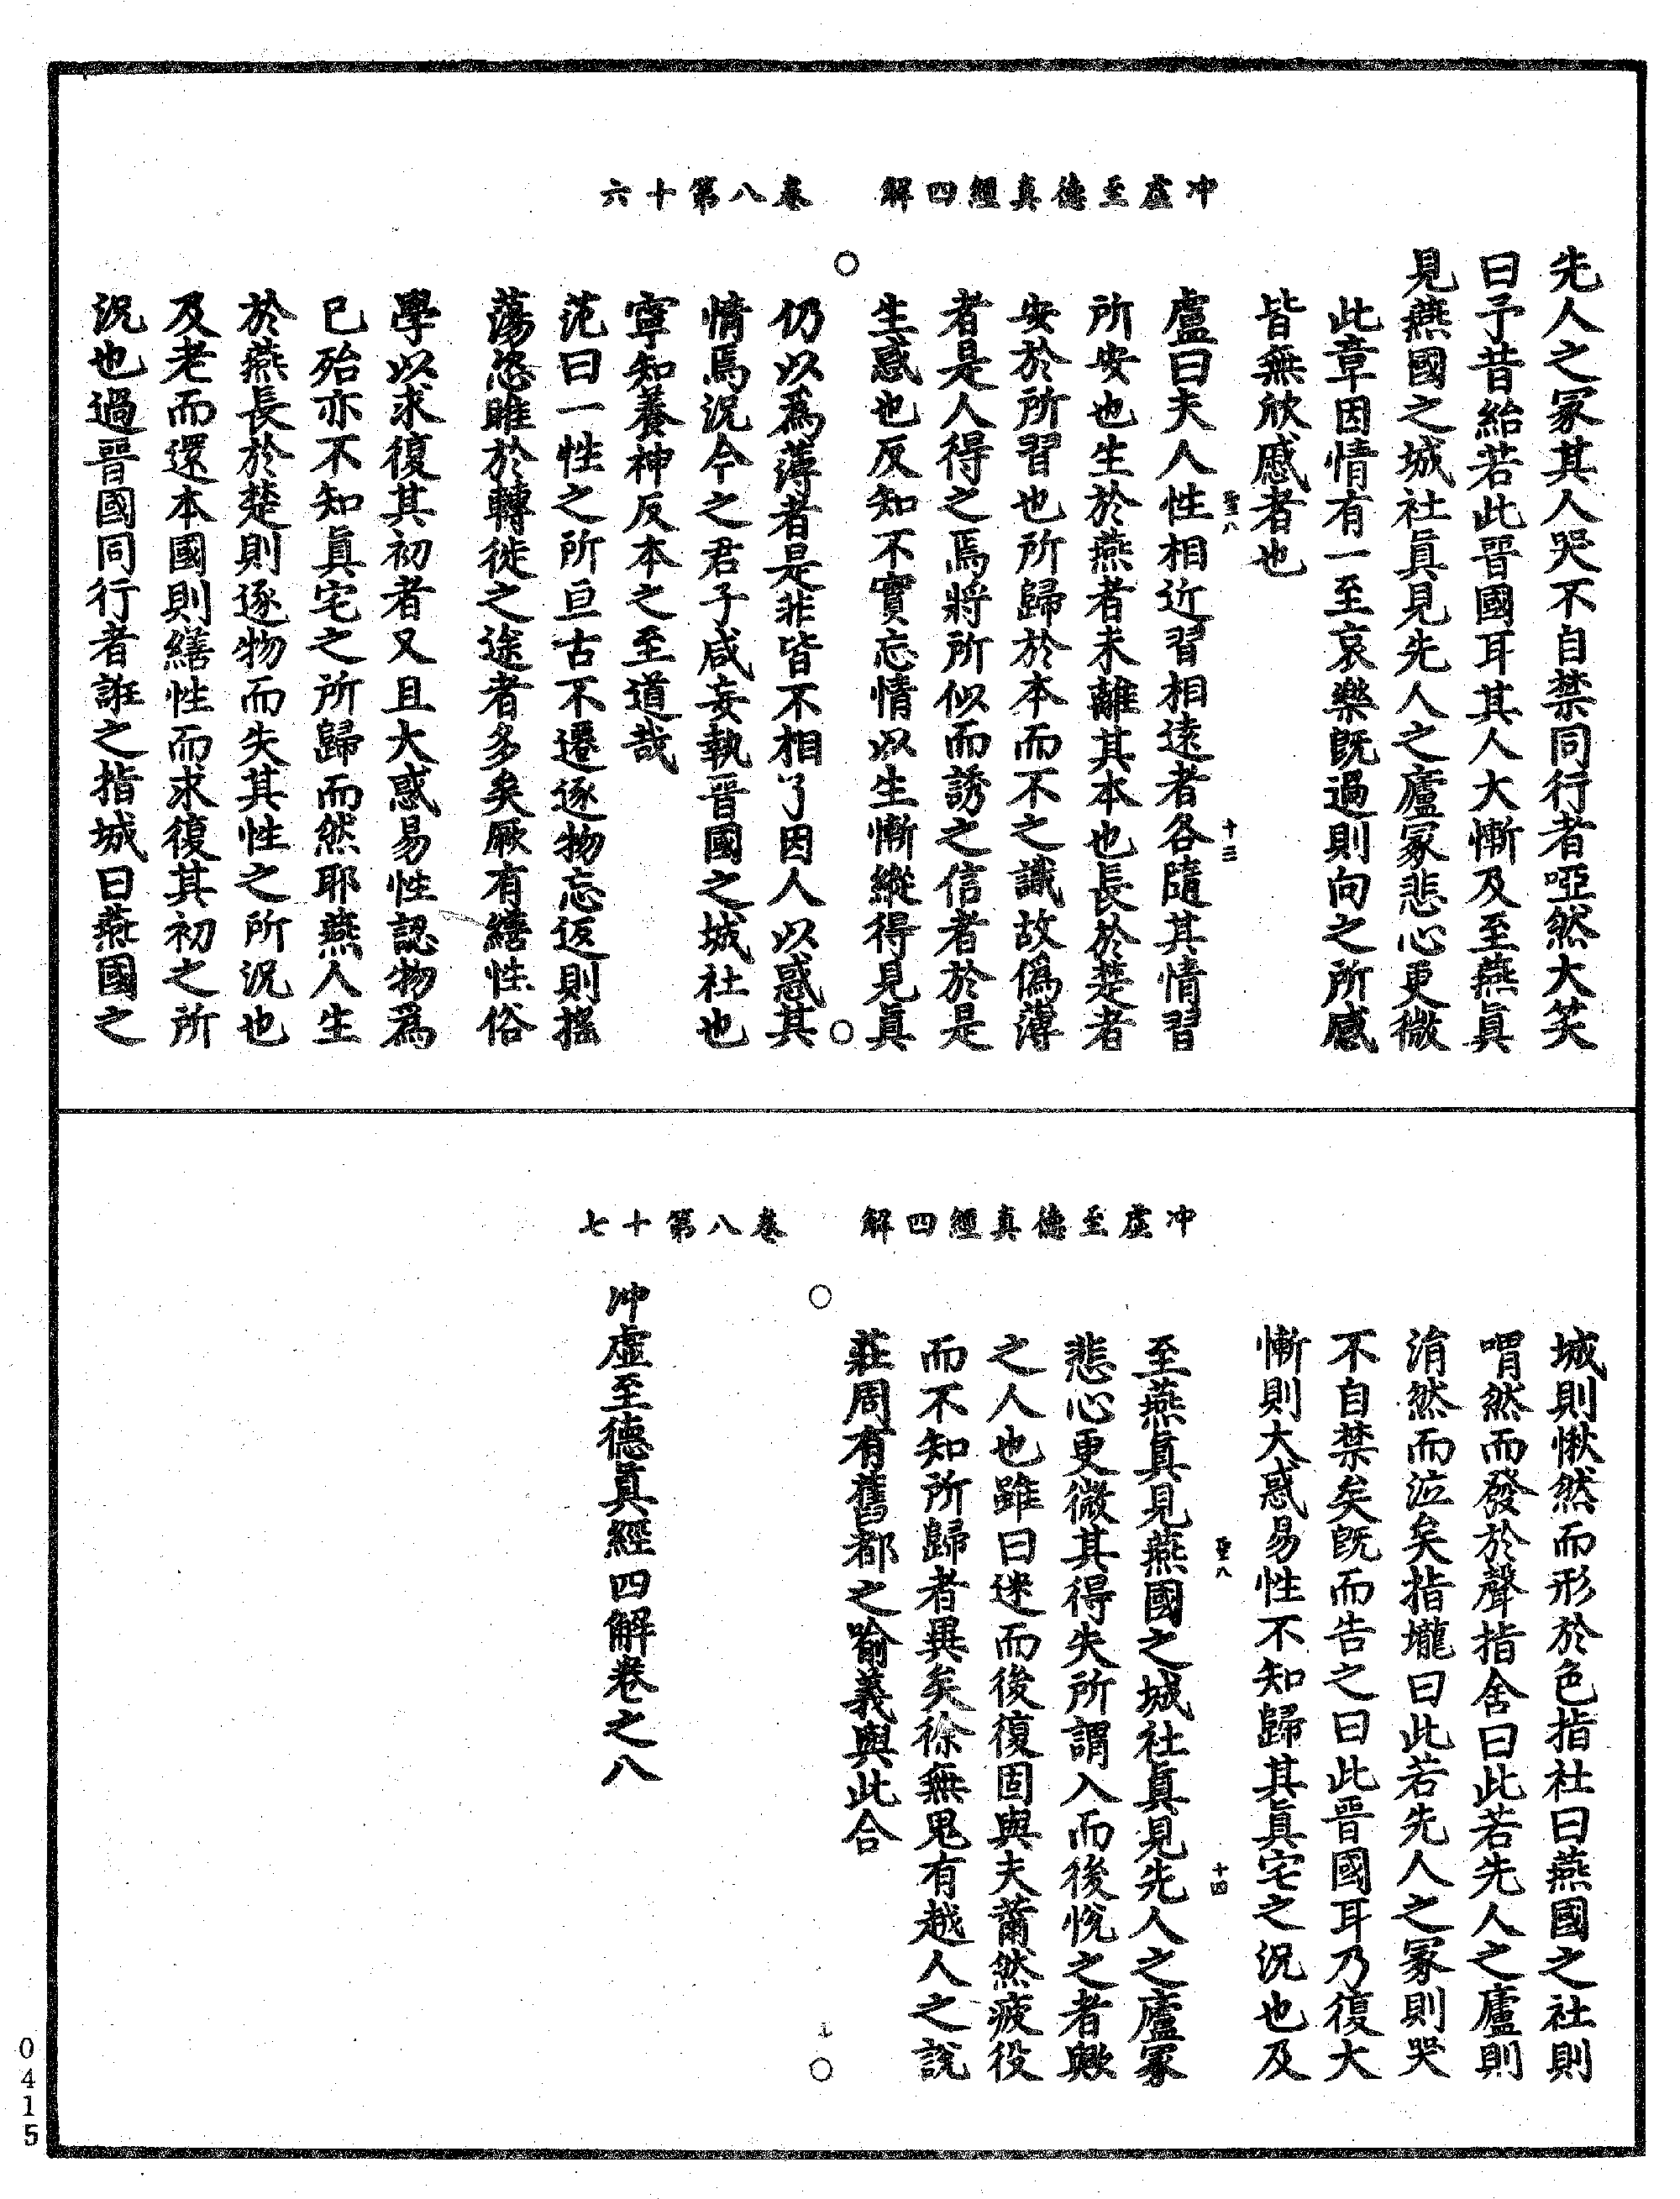 冲虛至德真經四解　卷八第十六
先人之冢其人哭不自禁同行者啞然大笑
曰予昔紿若此晉國耳其人大慚及至燕眞
見燕國之城社眞見先人之廬冢悲心更微
此章因情有一至哀樂旣過則向之所感
皆無欣慼者也
聖八　十三
盧曰夫人性相近習相遠者各隨其情習
所安也生於燕者未離其本也長於楚者
安於所習也所歸於本而不之識故僞薄
者是人得之焉將所似而誘之信者於是
生惑也反知不實忘情以生慚縱得見眞
仍以爲薄者是非皆不相了因人以惑其
情焉況今之君子咸妄執晉國之城社也
寧知養神反本之至道哉
范曰一性之所亘古不遷逐物忘返則揺
蕩恣睢於轉徙之途者多矣厥有繕性俗
學以求復其初者又且大惑易性認物爲
已殆亦不知眞宅之所歸而然耶燕人生
於燕長於楚則逐物而失其性之所況也
及老而還本國則繕性而求復其初之所
況也過晉國同行者誑之指城曰燕國之
冲虛至德真經四解　卷八第十七
城則愀然而形於色指社曰燕國之社則
喟然而發於聲指舍曰此若先人之廬則
涓然而泣矣指壠曰此若先人之冢則哭
不自禁矣旣而告之曰此晉國耳乃復大
慚則大惑易性不知歸其眞宅之況也及
聖八　十四
至燕眞見燕國之城社眞見先人之廬冢
悲心更微其得失所謂入而後悅之者歟
之人也雖曰迷而後復固與夫薾然疲役
而不知所歸者異矣徐無鬼有越人之說
莊周有舊都之喻義與此合
冲虛至德眞經四解卷之八
0415